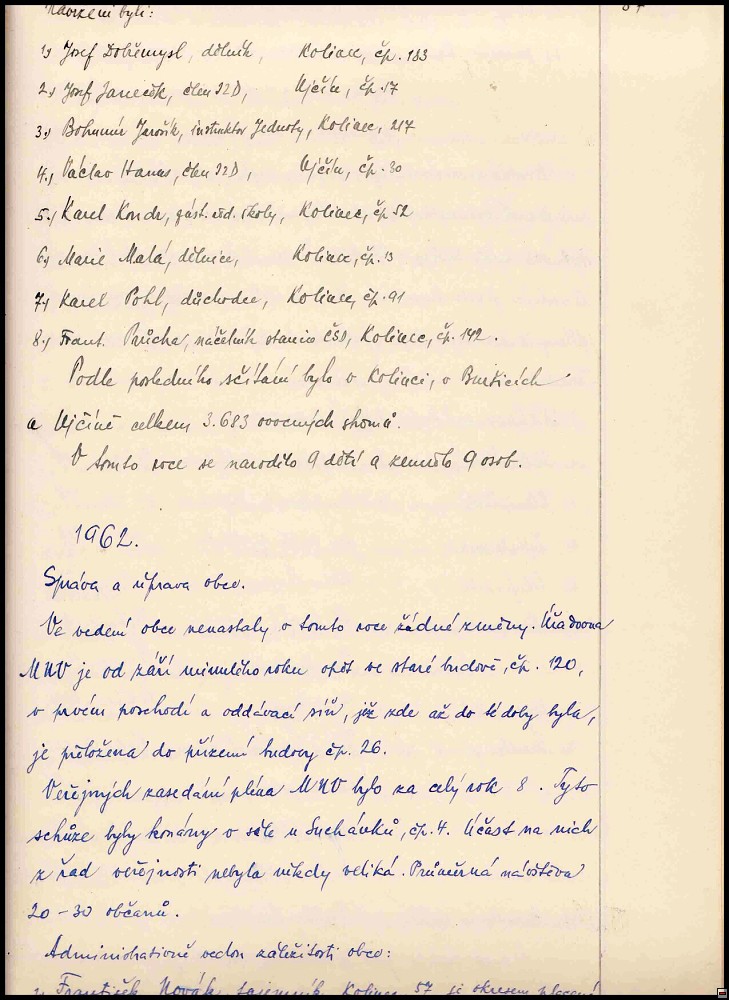 Navrženi byli:
1.) Josef Dobřemysl, dělník, Kolinec, čp. 183
2.) Josef Janeček, člen JZD, Ujčín, čp. 17
3.) Bohumír Jarošík, instruktor Jednoty, Kolinec, 217
4.) Václav Hanus, člen JZD, Ujčín, čp. 30
5.) Karel Kondr, zást. řed. školy, Kolinec, čp 52
6.) Marie Malá, dělnice, Kolinec, čp. 13
7.) Karel Pohl, důchodce, Kolinec, čp. 91
8.) Frant. Průcha, náčelník stanice ČSD, Kolinec, čp. 142.
Podle posledního sčítání bylo v Kolinci, v Buršicích
a Ujčíně celkem 3.683 ovocných stromů.
V tomto roce se narodilo 9 dětí a zemřelo 9 osob.
1962.
Správa a úprava obce.
Ve vedení obce nenastaly v tomto roce žádné změny. Úřadovna
MNV je od září minulého roku opět ve staré budově, čp. 120,
v prvém poschodí a oddávací síň, jež zde až do té doby byla,
je přeložena do přízemí budovy čp. 26.
Veřejných zasedání pléna MNV bylo za celý rok 8. Tyto
schůze byly konány v sále u Suchánků, čp. 4. Účast na nich
z řad veřejnosti nebyla nikdy veliká. Průměrná návštěva
20 - 30 občanů.
Administrativně vedou záležitosti obce:
František Novák, tajemník, Kolinec 57 je okresem placený